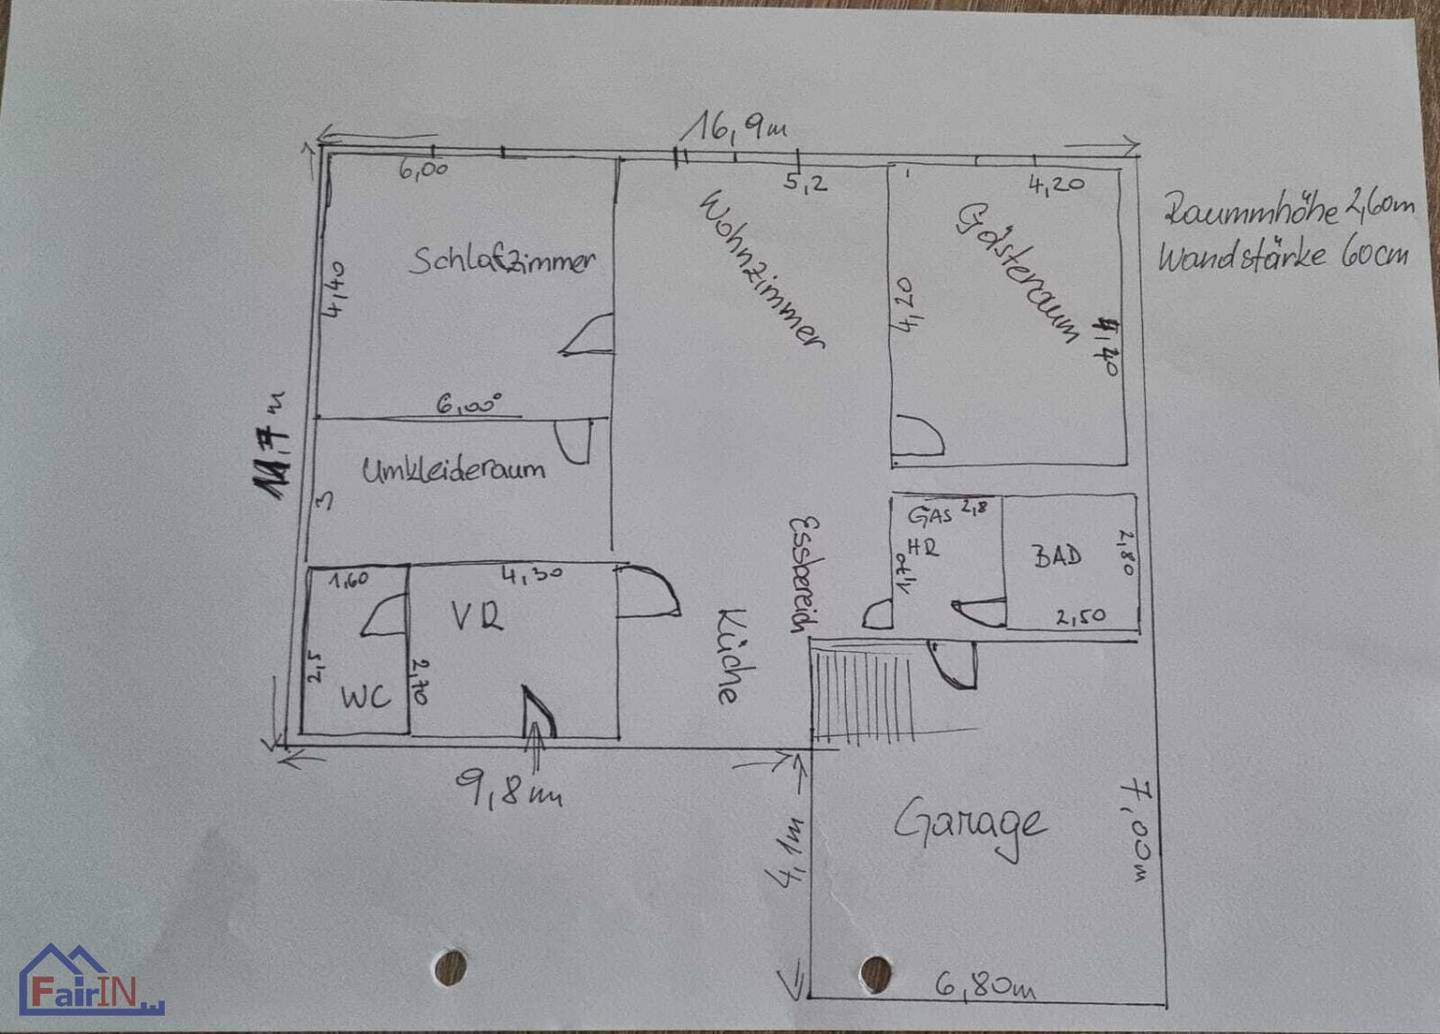 16,9m
6,00
5,2
4,20
Raummhöhe 2,60m
Wandstärke 60cm
Schlafzimmer
Wohnzimmer
Gästeraum
4,40
4,20
11,7 m
6,00
Umkleideraum
3
Essbereich
GAS 2,8
HR
BAD
2,80
2,50
1,60
4,30
VR
Küche
2,5
WC
2,70
9,8m
4,1m
Garage
7,00m
6,80m
FairIN...